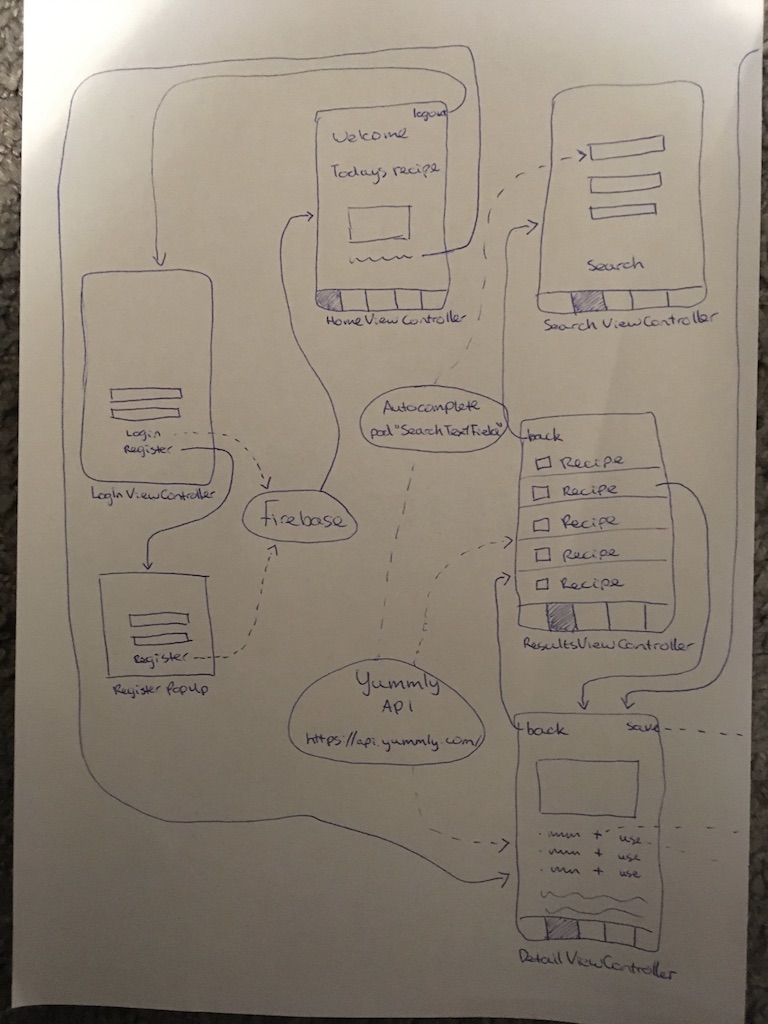 logout
Welcome
Todays recipe
HomeViewController
Search
SearchViewController
Login
Register
LogInViewController
Autocomplete
pod "SearchTextField"
Firebase
back
Recipe
Recipe
Recipe
Recipe
Recipe
ResultsViewController
Register
Register PopUp
Yummly
API
https://api.yummly.com/
back save
+ use
+ use
+ use
DetailViewController